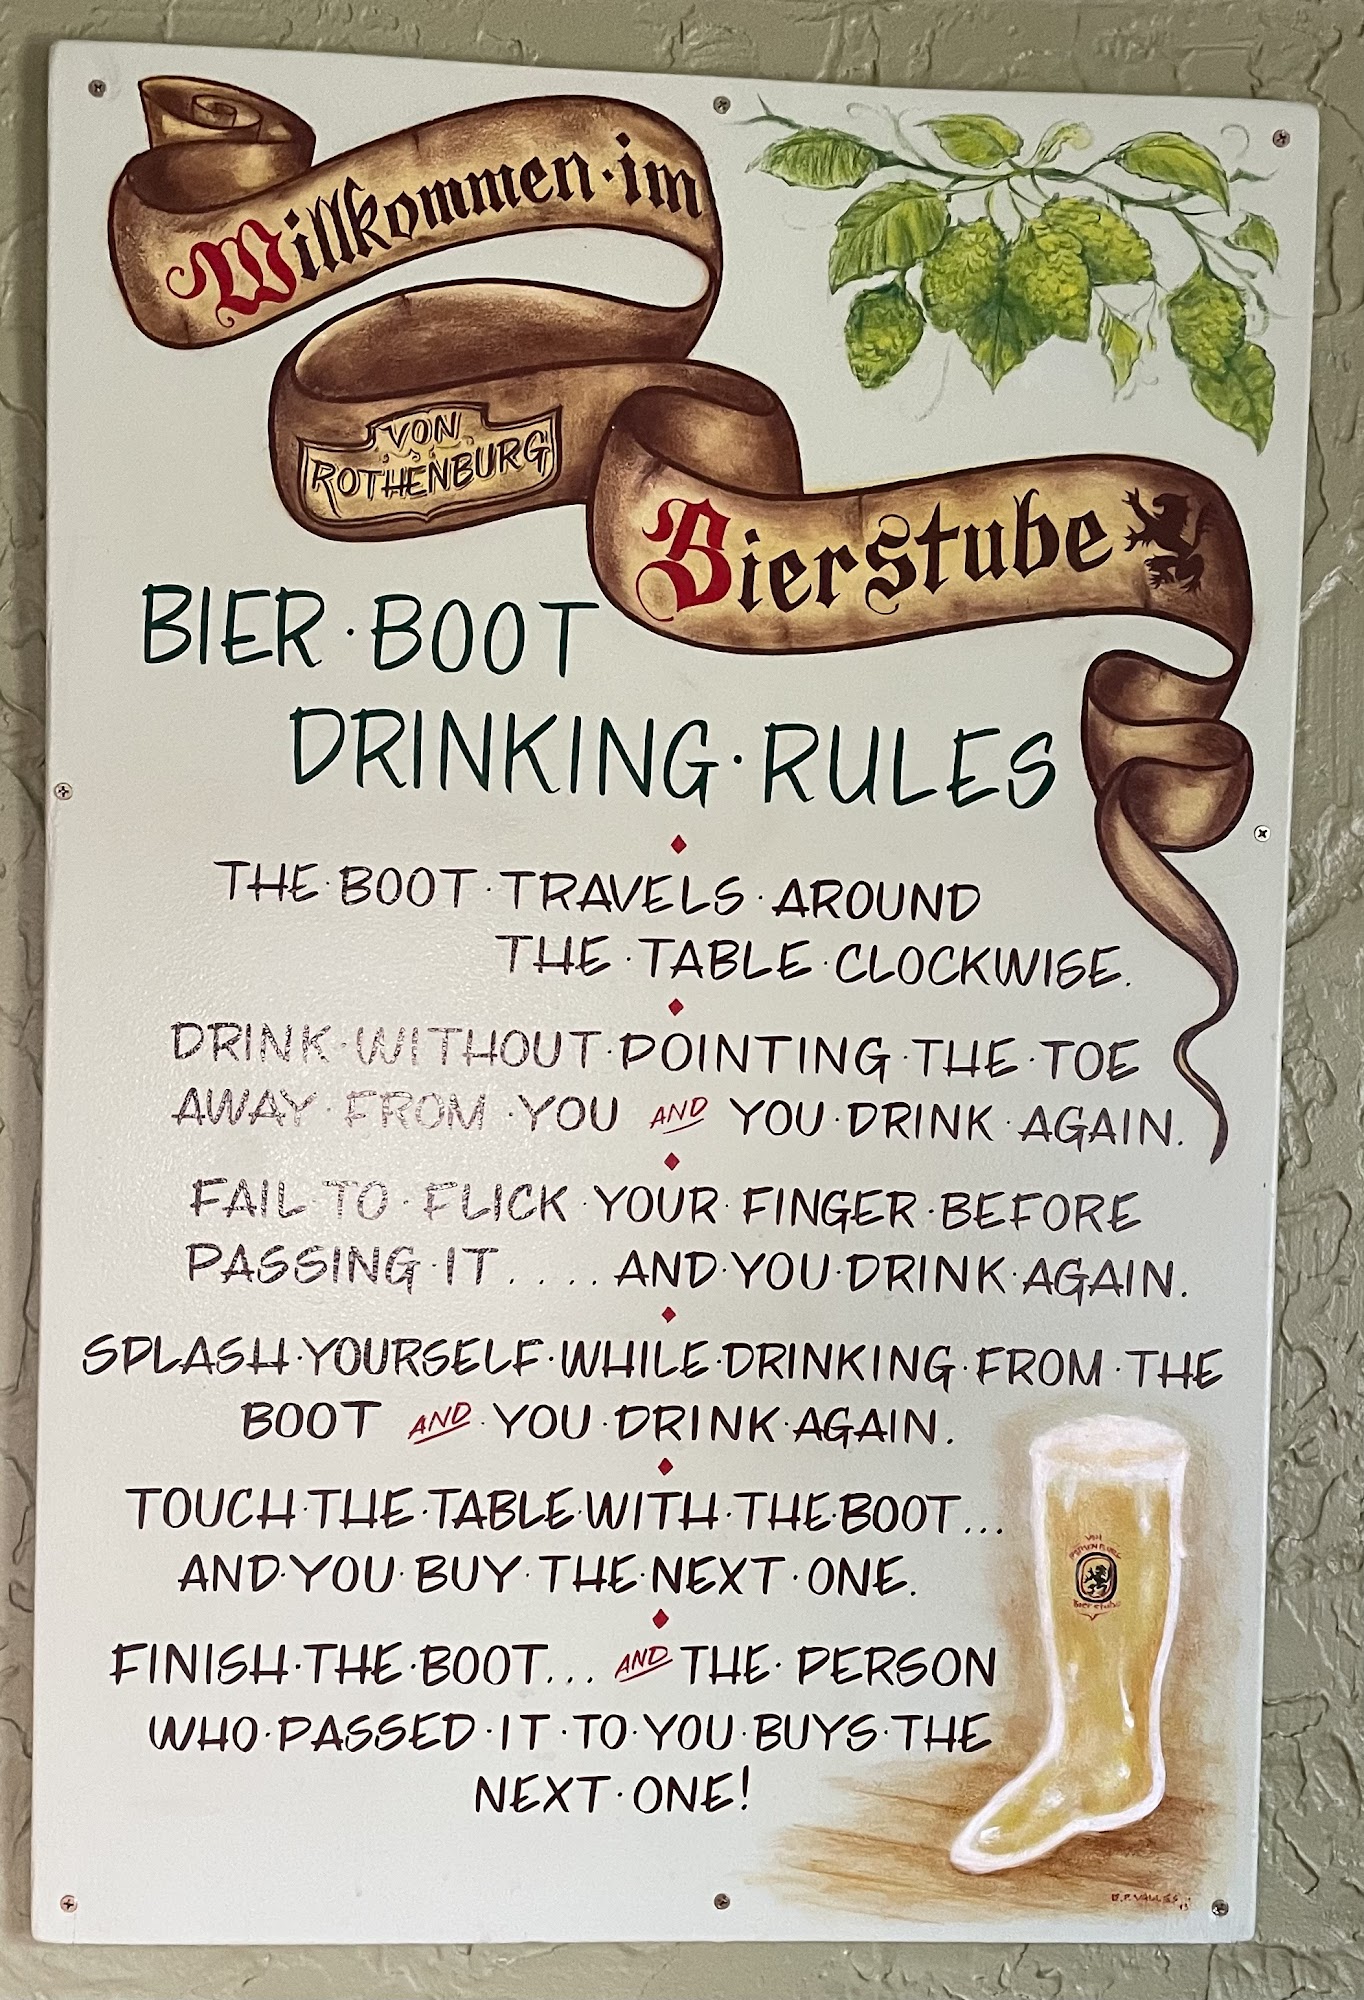 Willkommen · im
VON
ROTHENBURG
Bierstube
BIER · BOOT
DRINKING · RULES
THE · BOOT · TRAVELS · AROUND
THE · TABLE · CLOCKWISE.
DRINK · WITHOUT · POINTING · THE · TOE
AWAY · FROM · YOU AND YOU · DRINK · AGAIN.
FAIL · TO · FLICK · YOUR · FINGER · BEFORE
PASSING · IT.... AND · YOU · DRINK · AGAIN.
SPLASH · YOURSELF · WHILE · DRINKING · FROM · THE
BOOT AND · YOU · DRINK · AGAIN.
TOUCH · THE · TABLE · WITH · THE · BOOT...
AND · YOU · BUY · THE · NEXT · ONE.
FINISH · THE · BOOT... AND THE · PERSON
WHO · PASSED · IT · TO · YOU · BUYS · THE
NEXT · ONE!
VON
ROTHENBURG
Bierstube